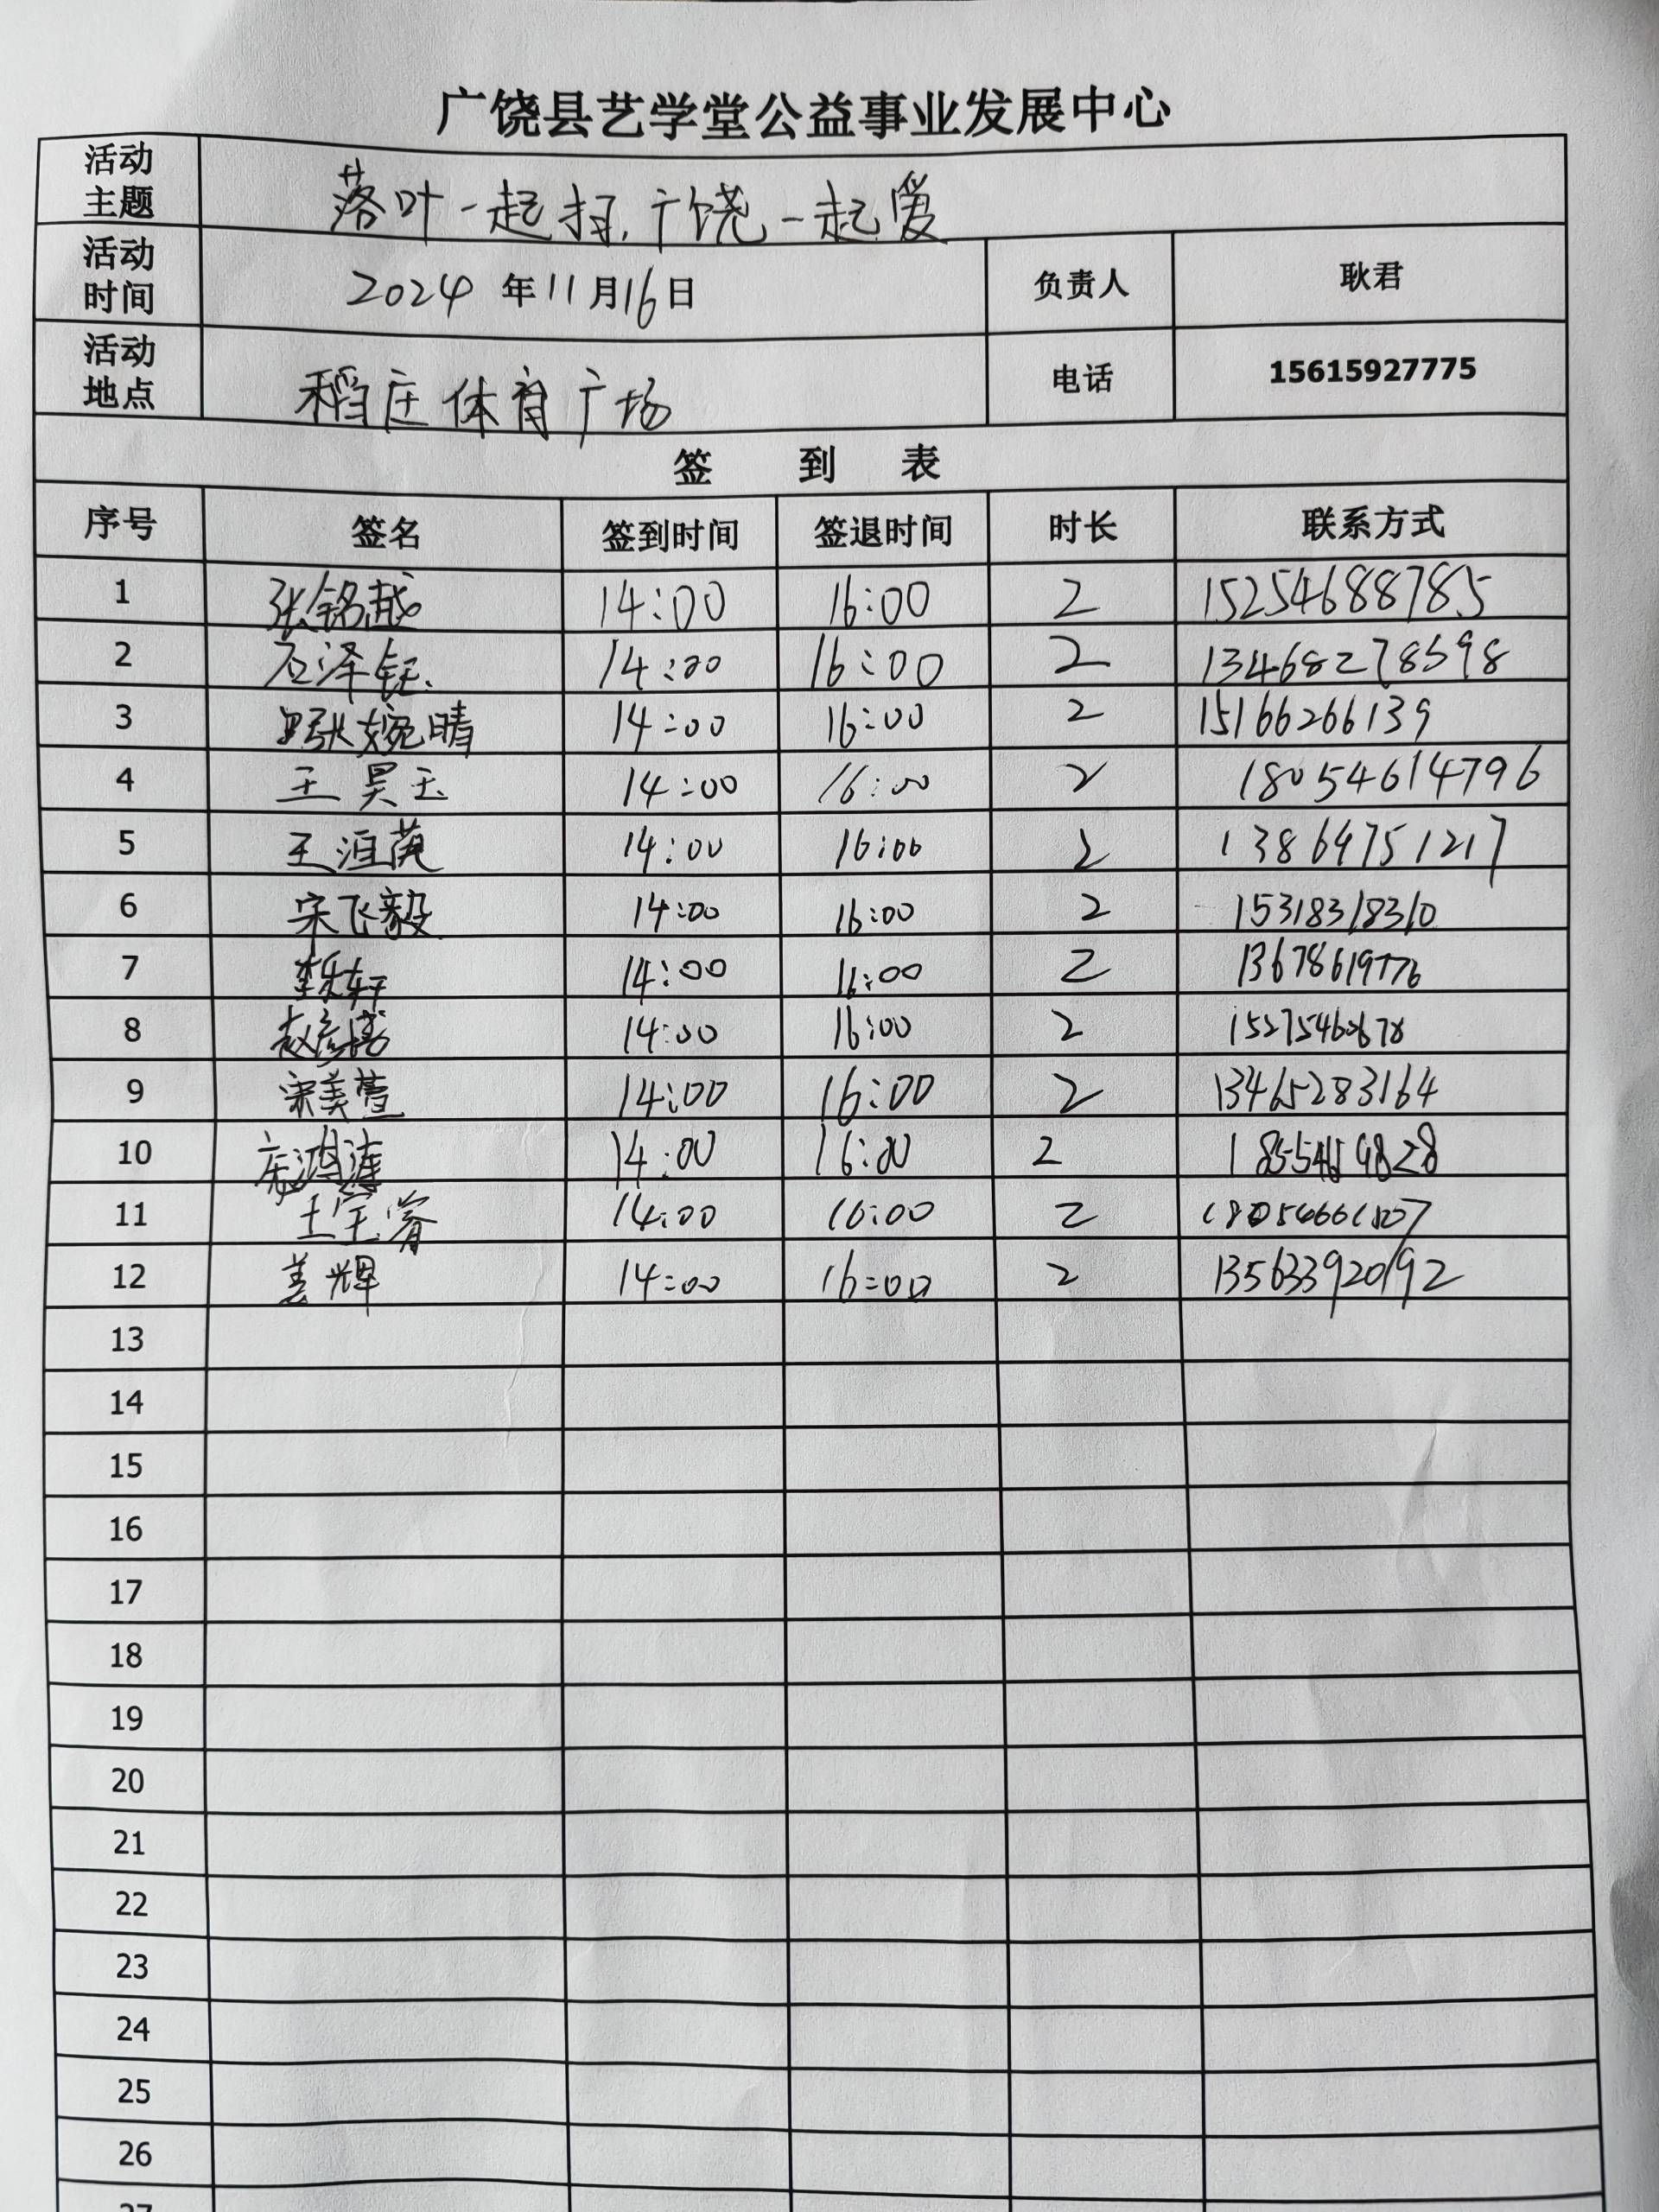 广饶县艺学堂公益事业发展中心
活动主题 落叶一起扫,广饶一起爱
活动时间 2024年11月16日 负责人 耿君
活动地点 稻庄体育广场 电话 15615927775
签 到 表
序号 签名 签到时间 签退时间 时长 联系方式
1 张铭越 14:00 16:00 2 15254688785
2 石泽钰 14:00 16:00 2 13468278598
3 张婉晴 14:00 16:00 2 15166266139
4 王昊玉 14:00 16:00 2 18054614796
5 王洹萸 14:00 16:00 2 13864751217
6 宋飞毅 14:00 16:00 2 15318318310
7 李乐轩 14:00 16:00 2 13678619776
8 赵彦博 14:00 16:00 2
9 宋美萱 14:00 16:00 2 13465283164
10 鸿涛 14:00 16:00 2 18554619828
11 王宝睿 14:00 16:00 2
12 姜辉 14:00 16:00 2 135633920192
13
14
15
16
17
18
19
20
21
22
23
24
25
26
27